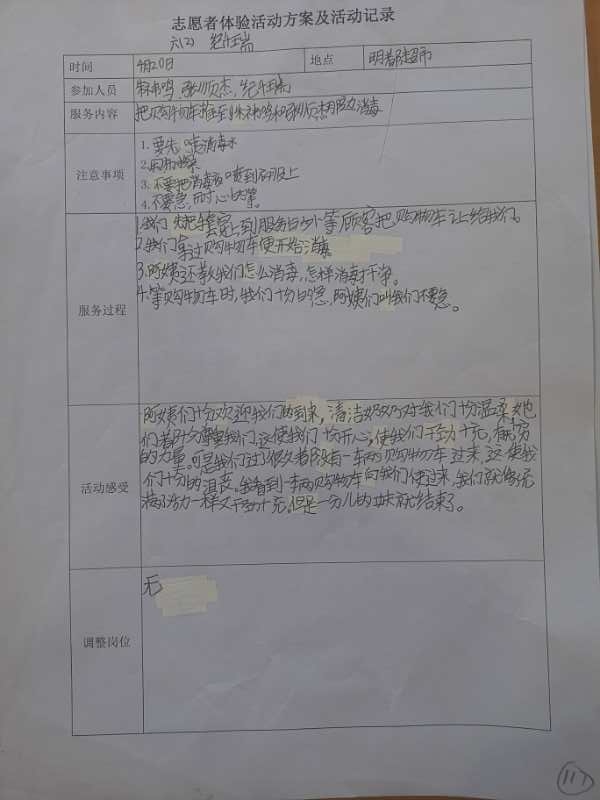 志愿者体验活动方案及活动记录
六(2) 纪钰瑞
时间 4月20日 地点 明都超市
参加人员 张顺杰, 纪钰瑞
服务内容 把购物车推至 消毒
注意事项
1. 要先喷消毒水
2.
3. 不要把消毒液喷到衣服上
4. 不要急,耐心的等。
服务过程
1.我们先把 套上到服务台外等顾客把购物车让给我们。
2.我们拿过购物车便开始消毒。
3.阿姨还教我们怎么消毒,怎样消毒干净。
4.等购物车时,我们十份的急,阿姨们叫我们不要急。
活动感受
阿姨们十份欢迎我们的到来,清洁奶奶对我们十份温柔她
们都十分 我们这使我们十份开心,使我们干劲十充,有无穷
的力量。可是我们过了很久都没有一车两购物车过来,这使我
们十份的沮丧。 看到一车两购物车向我们使过来,我们就像充
满了活力一样又干劲十充,但是一分儿的 就结束了。
调整岗位 无
117